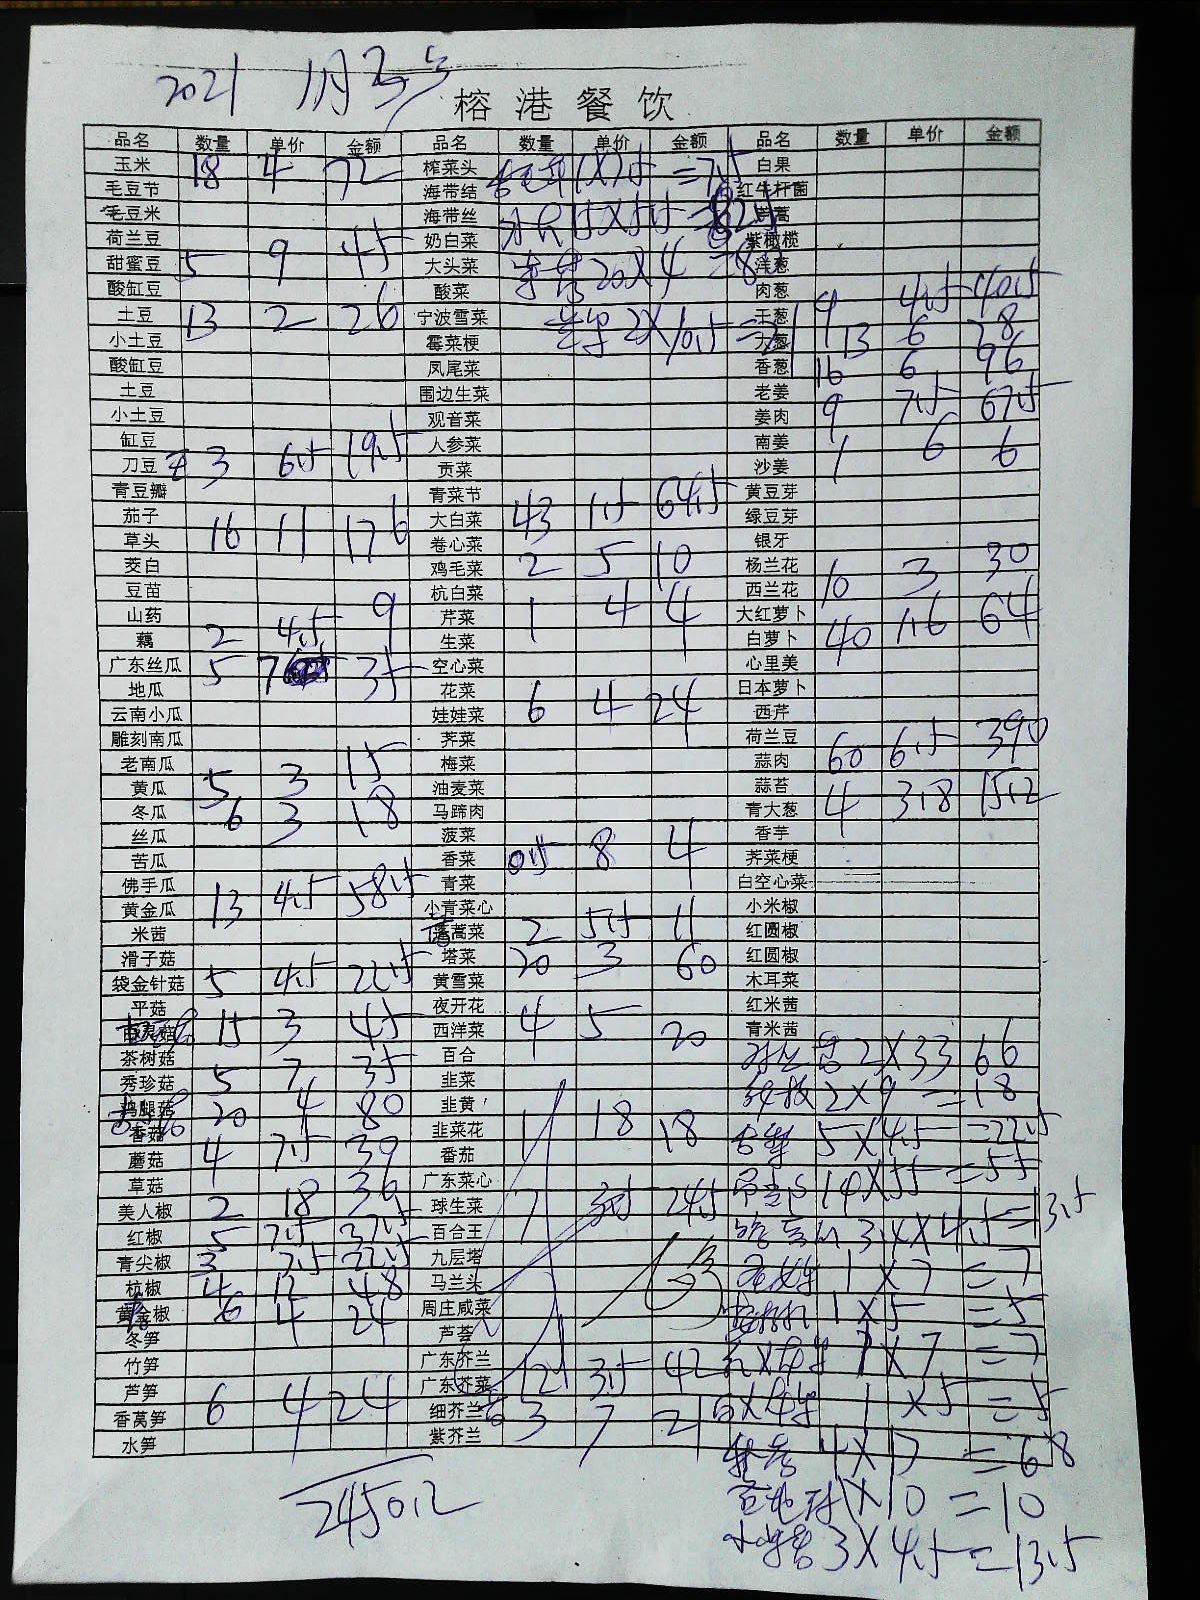 2021 1月
榕港餐饮
品名 数量 单价 金额 品名 数量 单价 金额 品名 数量 单价 金额
玉米 18 4 72 榨菜头 1X7.5 =7.5 白果
毛豆节 海带结 红牛杆菌
毛豆米 海带丝 15X5.5 茼蒿
荷兰豆 奶白菜 紫橄榄
甜蜜豆 5 9 45 大头菜 20X4 =80 洋葱
酸缸豆 酸菜 肉葱
土豆 13 2 26 宁波雪菜 2X10.5 =21 干葱 9 4.5 40.5
小土豆 霉菜梗 大葱 13 6 78
酸缸豆 凤尾菜 香葱 16 6 96
土豆 围边生菜 老姜
小土豆 观音菜 姜肉 9 7.5 67.5
缸豆 人参菜 南姜
刀豆 3 6.5 19.5 贡菜 沙姜 1 6 6
青豆瓣 青菜节 黄豆芽
茄子 大白菜 43 1.5 64.5 绿豆芽
草头 16 11 176 卷心菜 银牙
茭白 鸡毛菜 2 5 10 杨兰花
豆苗 杭白菜 西兰花 10 3 30
山药 芹菜 1 4 4 大红萝卜
藕 2 4.5 9 生菜 白萝卜 40 1.6 64
广东丝瓜 5 7 35 空心菜 心里美
地瓜 花菜 日本萝卜
云南小瓜 娃娃菜 6 4 24 西芹
雕刻南瓜 荠菜 荷兰豆
老南瓜 梅菜 蒜肉 60 6.5 390
黄瓜 5 3 15 油麦菜 蒜苔
冬瓜 6 3 18 马蹄肉 青大葱 4 3.8 15.2
丝瓜 菠菜 香芋
苦瓜 香菜 0.5 8 4 荠菜梗
佛手瓜 青菜 白空心菜
黄金瓜 13 4.5 58.5 小青菜心 小米椒
米茜 蓬蒿菜 2 5.5 11 红圆椒
滑子菇 塔菜 20 3 60 红圆椒
袋金针菇 5 4.5 22.5 黄雪菜 木耳菜
平菇 夜开花 红米茜
15 3 45 西洋菜 4 5 20 青米茜
茶树菇 百合 2X33 66
秀珍菇 5 7 35 韭菜 2X9 =18
鸡腿菇 20 4 80 韭黄
香菇 韭菜花 1 18 18 5X4.5 =22.5
蘑菇 4 7.5 30 番茄
草菇 广东菜心 =55
美人椒 2 18 36 球生菜 7 3.5 24.5
红椒 5 7.5 37.5 百合王 3X4.5 =13.5
青尖椒 3 7.5 22.5 九层塔 1X7 =7
杭椒 4 12 48 马兰头
黄金椒 6 4 24 周庄咸菜 1X5 =5
冬笋 芦荟
竹笋 广东芥兰 1X7 =7
芦笋 广东芥菜 12 3.5 42
香莴笋 6 4 24 细芥兰 3 7 21 1X5 =5
水笋 紫芥兰
4X17 =68
2450.2 1X10=10
3X4.5=13.5